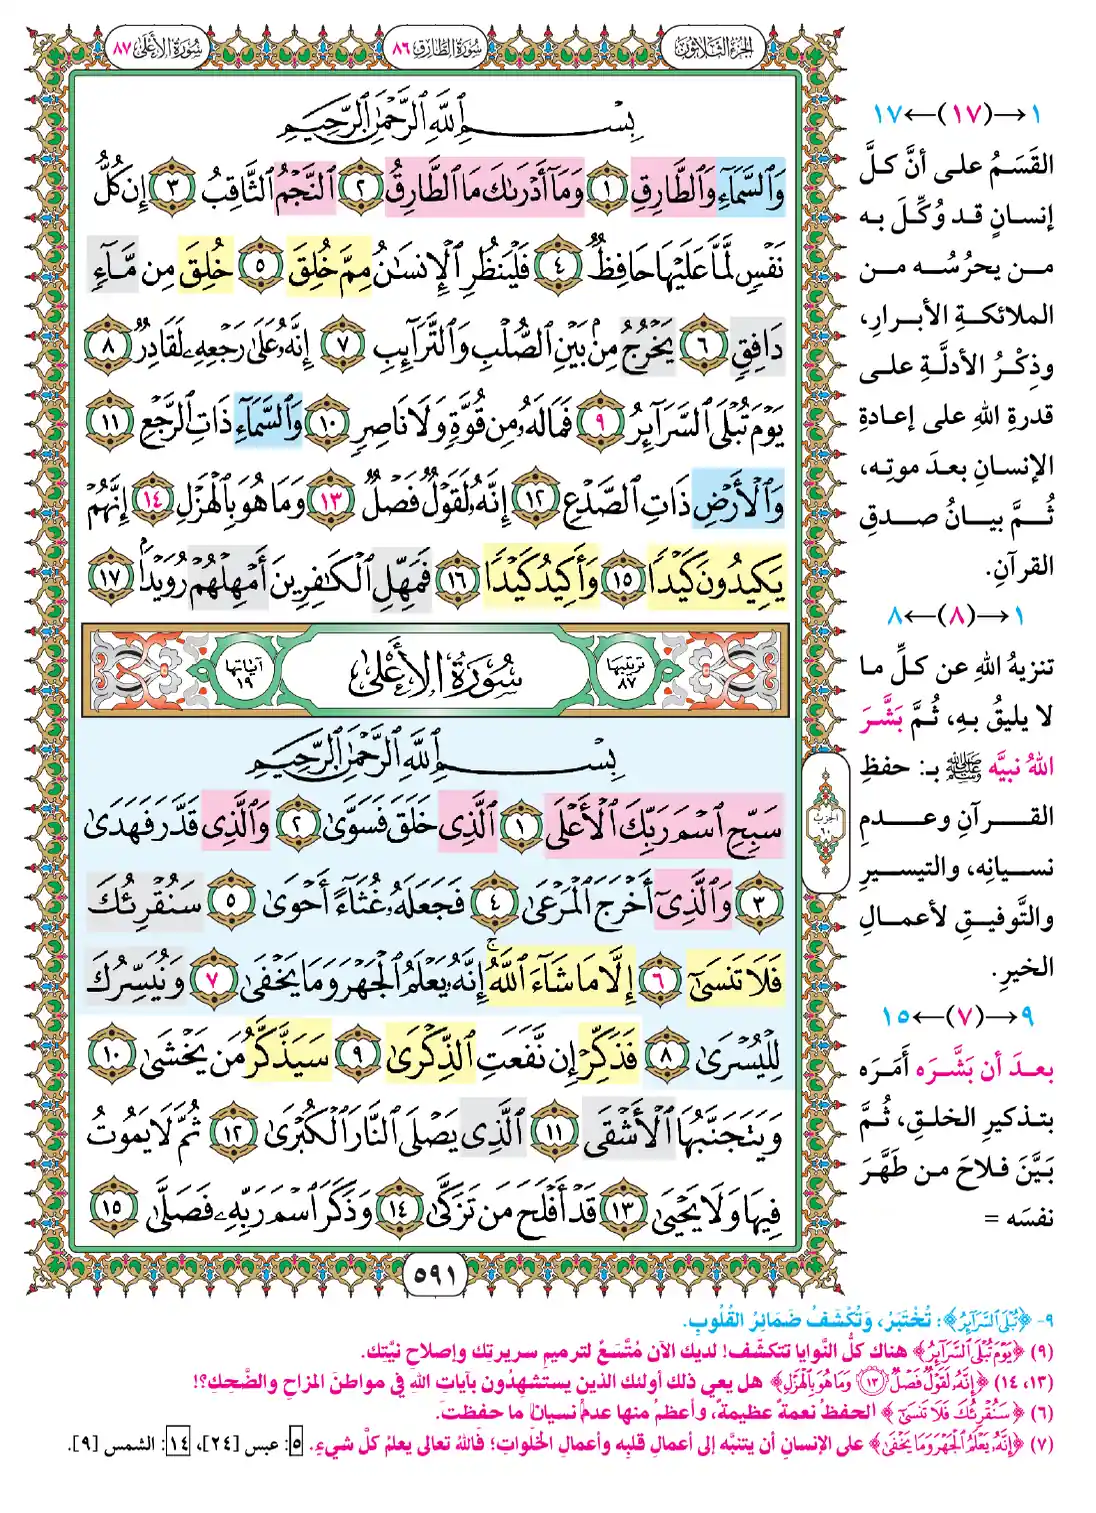 الجزء الثلاثون
سورة الطارق ٨٦
سورة الأعلى ٨٧
بِسْمِ ٱللَّهِ ٱلرَّحْمَٰنِ ٱلرَّحِيمِ
وَٱلسَّمَآءِ وَٱلطَّارِقِ ١ وَمَآ أَدْرَىٰكَ مَا ٱلطَّارِقُ ٢ ٱلنَّجْمُ ٱلثَّاقِبُ ٣ إِن كُلُّ
نَفْسٍ لَّمَّا عَلَيْهَا حَافِظٌ ٤ فَلْيَنظُرِ ٱلْإِنسَٰنُ مِمَّ خُلِقَ ٥ خُلِقَ مِن مَّآءٍ
دَافِقٍ ٦ يَخْرُجُ مِنۢ بَيْنِ ٱلصُّلْبِ وَٱلتَّرَآئِبِ ٧ إِنَّهُۥ عَلَىٰ رَجْعِهِۦ لَقَادِرٌ ٨
يَوْمَ تُبْلَى ٱلسَّرَآئِرُ ٩ فَمَا لَهُۥ مِن قُوَّةٍ وَلَا نَاصِرٍ ١٠ وَٱلسَّمَآءِ ذَاتِ ٱلرَّجْعِ ١١
وَٱلْأَرْضِ ذَاتِ ٱلصَّدْعِ ١٢ إِنَّهُۥ لَقَوْلٌ فَصْلٌ ١٣ وَمَا هُوَ بِٱلْهَزْلِ ١٤ إِنَّهُمْ
يَكِيدُونَ كَيْدًا ١٥ وَأَكِيدُ كَيْدًا ١٦ فَمَهِّلِ ٱلْكَٰفِرِينَ أَمْهِلْهُمْ رُوَيْدًۢا ١٧
ترتيبها ٨٧
سُورَةُ الأَعْلَىٰ
آياتها ١٩
بِسْمِ ٱللَّهِ ٱلرَّحْمَٰنِ ٱلرَّحِيمِ
سَبِّحِ ٱسْمَ رَبِّكَ ٱلْأَعْلَى ١ ٱلَّذِى خَلَقَ فَسَوَّىٰ ٢ وَٱلَّذِى قَدَّرَ فَهَدَىٰ
٣ وَٱلَّذِىٓ أَخْرَجَ ٱلْمَرْعَىٰ ٤ فَجَعَلَهُۥ غُثَآءً أَحْوَىٰ ٥ سَنُقْرِئُكَ
فَلَا تَنسَىٰٓ ٦ إِلَّا مَا شَآءَ ٱللَّهُ ۚ إِنَّهُۥ يَعْلَمُ ٱلْجَهْرَ وَمَا يَخْفَىٰ ٧ وَنُيَسِّرُكَ
لِلْيُسْرَىٰ ٨ فَذَكِّرْ إِن نَّفَعَتِ ٱلذِّكْرَىٰ ٩ سَيَذَّكَّرُ مَن يَخْشَىٰ ١٠
وَيَتَجَنَّبُهَا ٱلْأَشْقَى ١١ ٱلَّذِى يَصْلَى ٱلنَّارَ ٱلْكُبْرَىٰ ١٢ ثُمَّ لَا يَمُوتُ
فِيهَا وَلَا يَحْيَىٰ ١٣ قَدْ أَفْلَحَ مَن تَزَكَّىٰ ١٤ وَذَكَرَ ٱسْمَ رَبِّهِۦ فَصَلَّىٰ ١٥
٥٩١
الحزب ٦٠
١→(١٧)←١٧
القَسَمُ على أنَّ كلَّ
إنسانٍ قد وُكِّلَ به
من يحرُسُه من
الملائكةِ الأبرارِ،
وذِكْرُ الأدلَّةِ على
قدرةِ اللهِ على إعادةِ
الإنسانِ بعدَ موتِه،
ثُمَّ بيانُ صدقِ
القرآنِ.
١→(٨)←٨
تنزيهُ اللهِ عن كلِّ ما
لا يليقُ بهِ، ثُمَّ بَشَّرَ
اللهُ نبيَّه ﷺ بـ: حفظِ
القرآنِ وعدمِ
نسيانِه، والتيسيرِ
والتَّوفيقِ لأعمالِ
الخيرِ.
٩→(٧)←١٥
بعدَ أن بَشَّرَه أَمَرَه
بتذكيرِ الخلقِ، ثُمَّ
بَيَّنَ فلاحَ من طَهَّرَ
نفسَه =
٩- ﴿تُبْلَى ٱلسَّرَآئِرُ﴾: تُخْتَبَرُ، وَتُكْشَفُ ضَمَائِرُ القُلُوبِ.
(٩) ﴿يَوْمَ تُبْلَى ٱلسَّرَآئِرُ﴾ هناك كلُّ النَّوايا تتكشَّف! لديك الآن مُتَّسَعٌ لترميمِ سريرتِك وإصلاحِ نيَّتِك.
(١٣، ١٤) ﴿إِنَّهُۥ لَقَوْلٌ فَصْلٌ ١٣ وَمَا هُوَ بِٱلْهَزْلِ﴾ هل يعي ذلك أولئك الذين يستشهِدُون بآياتِ اللهِ في مواطنِ المزاحِ والضَّحِكِ؟!
(٦) ﴿سَنُقْرِئُكَ فَلَا تَنسَىٰٓ﴾ الحفظُ نعمةٌ عظيمةٌ، وأعظمُ منها عدمُ نسيانِ ما حفظتَ.
(٧) ﴿إِنَّهُۥ يَعْلَمُ ٱلْجَهْرَ وَمَا يَخْفَىٰ﴾ على الإنسانِ أن يتنبَّه إلى أعمالِ قلبِه وأعمالِ الخَلَواتِ؛ فاللهُ تعالى يعلمُ كلَّ شيءٍ. ٥: عبس [٢٤]، ١٤: الشمس [٩].